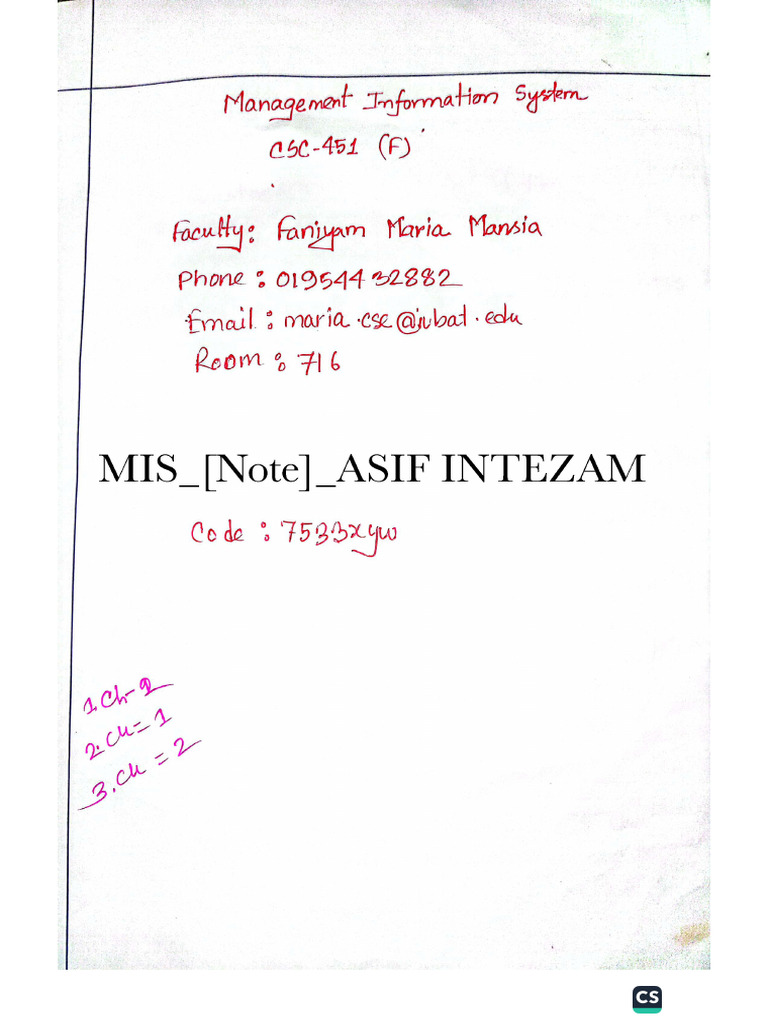 Management Information System
CSC-451 (F)
Faculty: Faniyam Maria Mansia
Phone: 01954432882
Email: maria.cse@iubat.edu
Room: 716
MIS_[Note]_ASIF INTEZAM
Code: 7533xyw
1. Ch-
2. Ch = 1
3. Ch = 2
CS